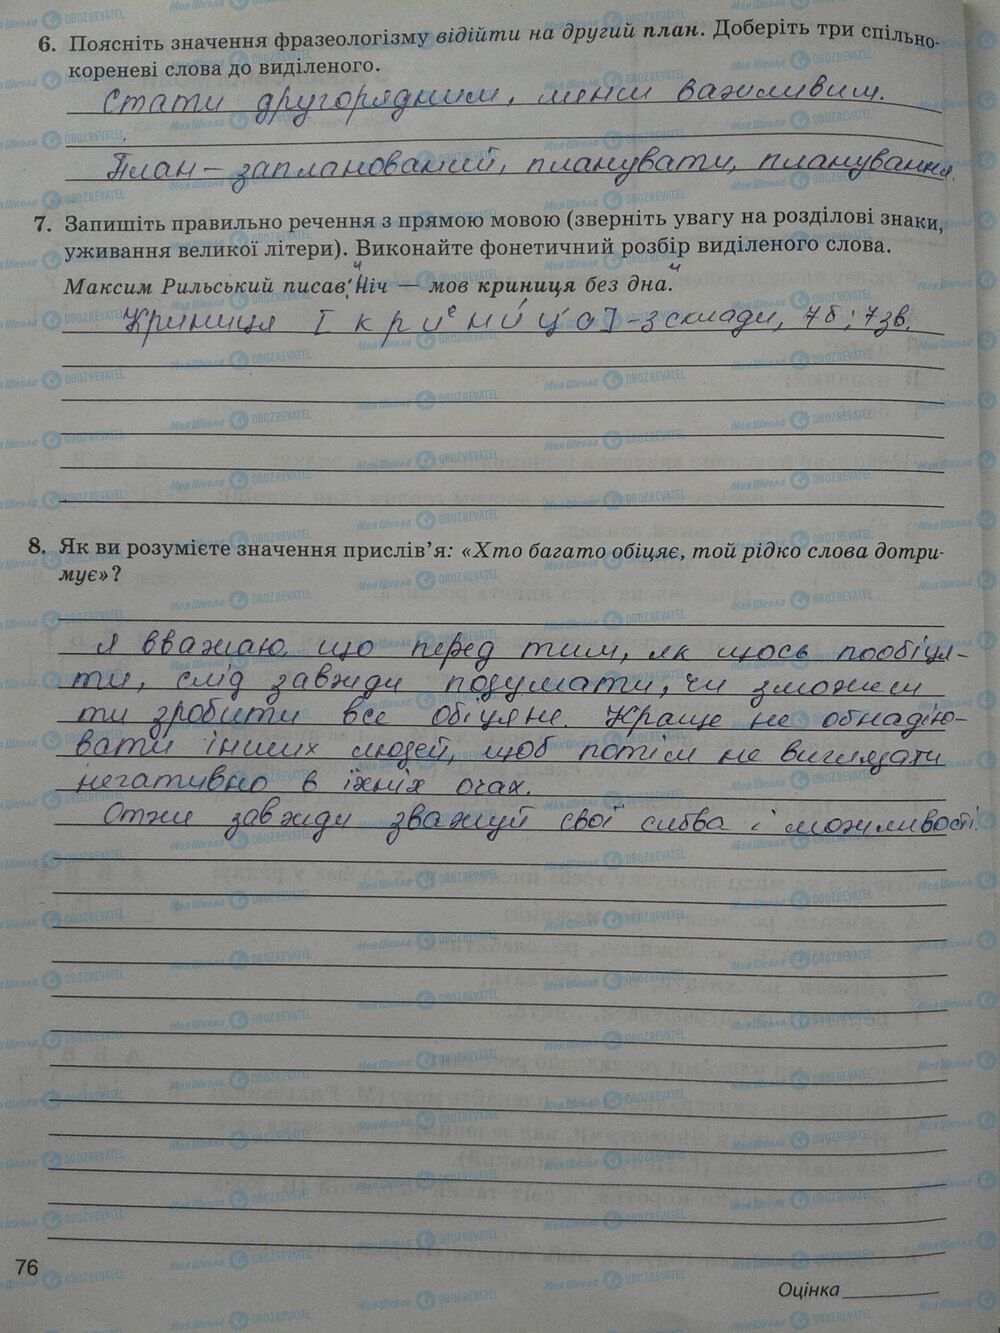 6. Поясніть значення фразеологізму відійти на другий план. Доберіть три спільно-
кореневі слова до виділеного.
Стати другорядним, менш важливим.
План – запланований, планувати, планування.
7. Запишіть правильно речення з прямою мовою (зверніть увагу на розділові знаки,
уживання великої літери). Виконайте фонетичний розбір виділеного слова.
Максим Рильський писав: "Ніч — мов криниця без дна".
Криниця [к р и е н и́ ц' а] - 3 склади, 7 б; 7 зв.
8. Як ви розумієте значення прислів’я: «Хто багато обіцяє, той рідко слова дотри-
мує»?
Я вважаю, що перед тим, як щось пообіця-
ти, слід завжди подумати, чи зможеш
ти зробити все обіцяне. Краще не обнадію-
вати інших людей, щоб потім не виглядати
негативно в їхніх очах.
Отже завжди зважуй свої слова і можливості.
76
Оцінка